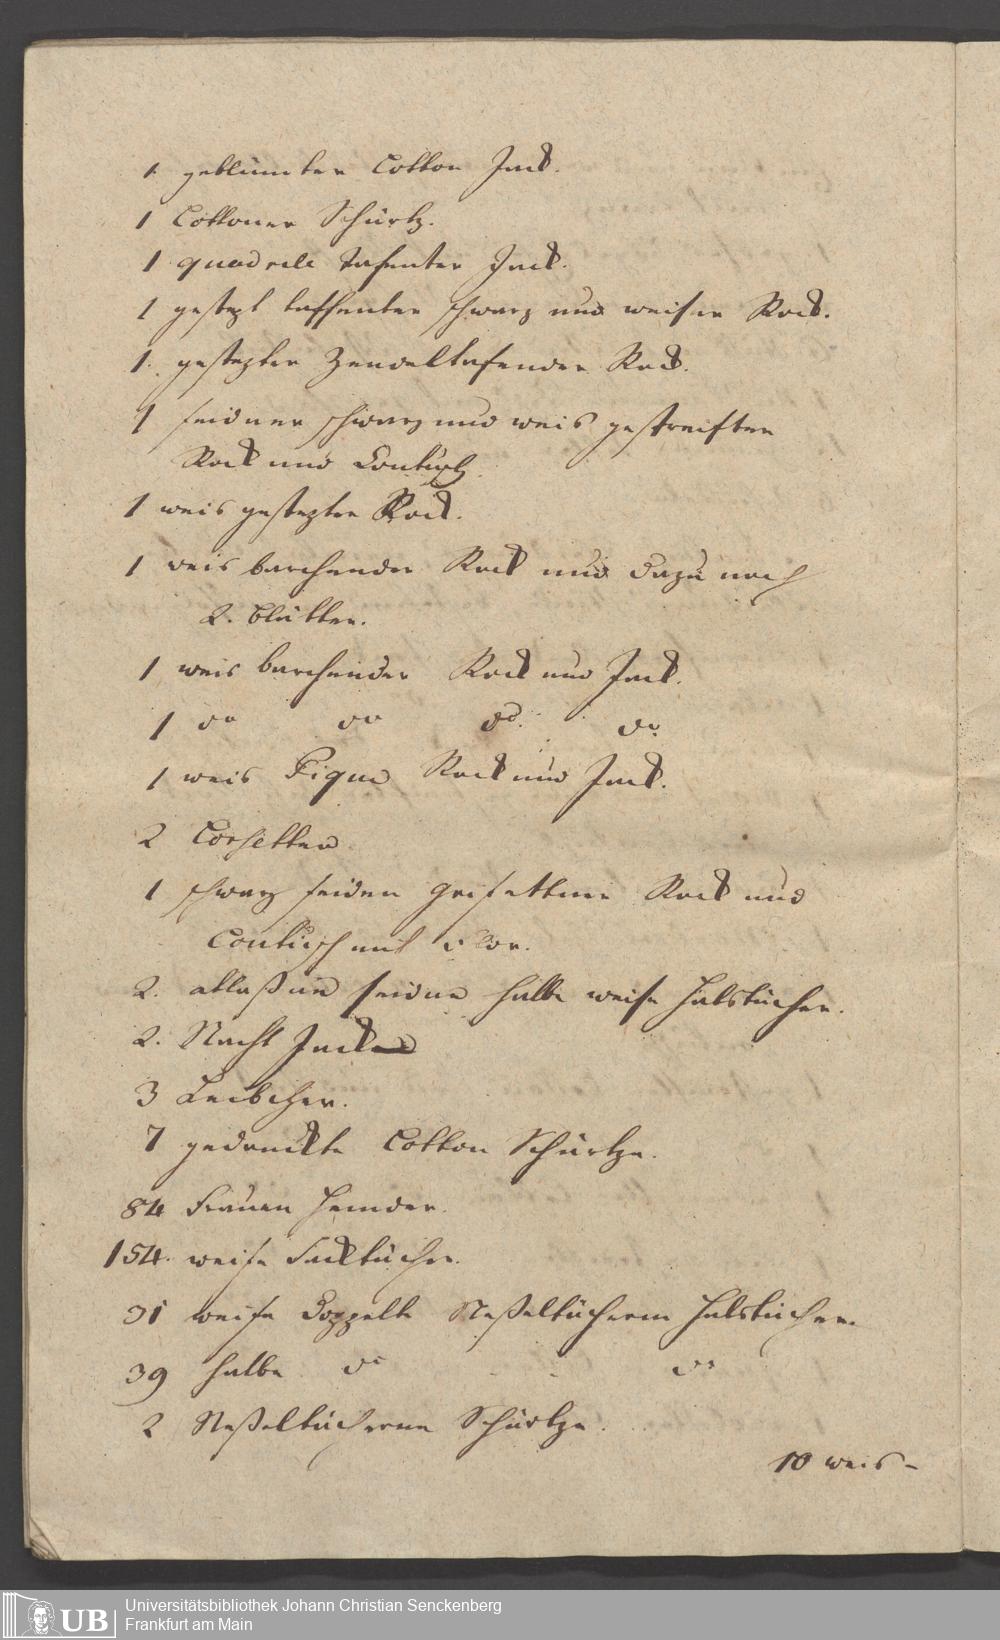 1. geblümter Cotton Jack.
1 Cottoner Schürtz.
1 quadrile tafenter Jack.
1 gestept taffenter schwarz und weiser Rock.
1. gestepter Zendeltafender Rock.
1 seidner schwarz und weis gestreifter
Rock und
1 weis gestepter Rock.
1 weis barchender Rock und dazu noch
2. Blätter.
1 weis barchender Rock und Jack.
1 do do do. do.
1 weis Pique Rock und Jack.
2 Corsetten
1 schwarz seiden grisettner Rock und
Contusch mit Flor.
2. atlaßne seidne halbe weise Halstücher.
2. Nacht Jacken
3 Leibcher.
7 gedruckte Cotton Schürtze.
84 Frauen Hemder.
154. weise Sacktücher.
31 weise Doppelte Neßeltücherne Halstücher.
39 halbe do do
2 Neßeltücherne Schürtze.
10 weis-
UB Universitätsbibliothek Johann Christian Senckenberg
Frankfurt am Main